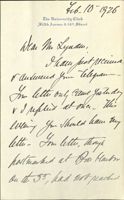 The University Club
Fifth Avenue & 54th Street
Feb. 10 1926
Dear Mr Lyndon,
I have just received
& answered your telegram.
Your letter only came yesterday
& I replied at once. This
evening you should have my
letter. Your letter, though
postmarked at
on the 8th, had not reached